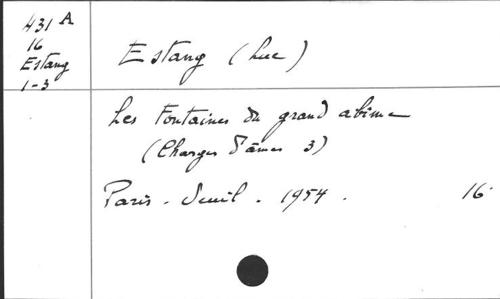 431 A
16
Estang
1-3
Estang (Luc)
Les Fontaines du grand abîme
(Charges d'âmes 3)
Paris - Seuil - 1954.
16°